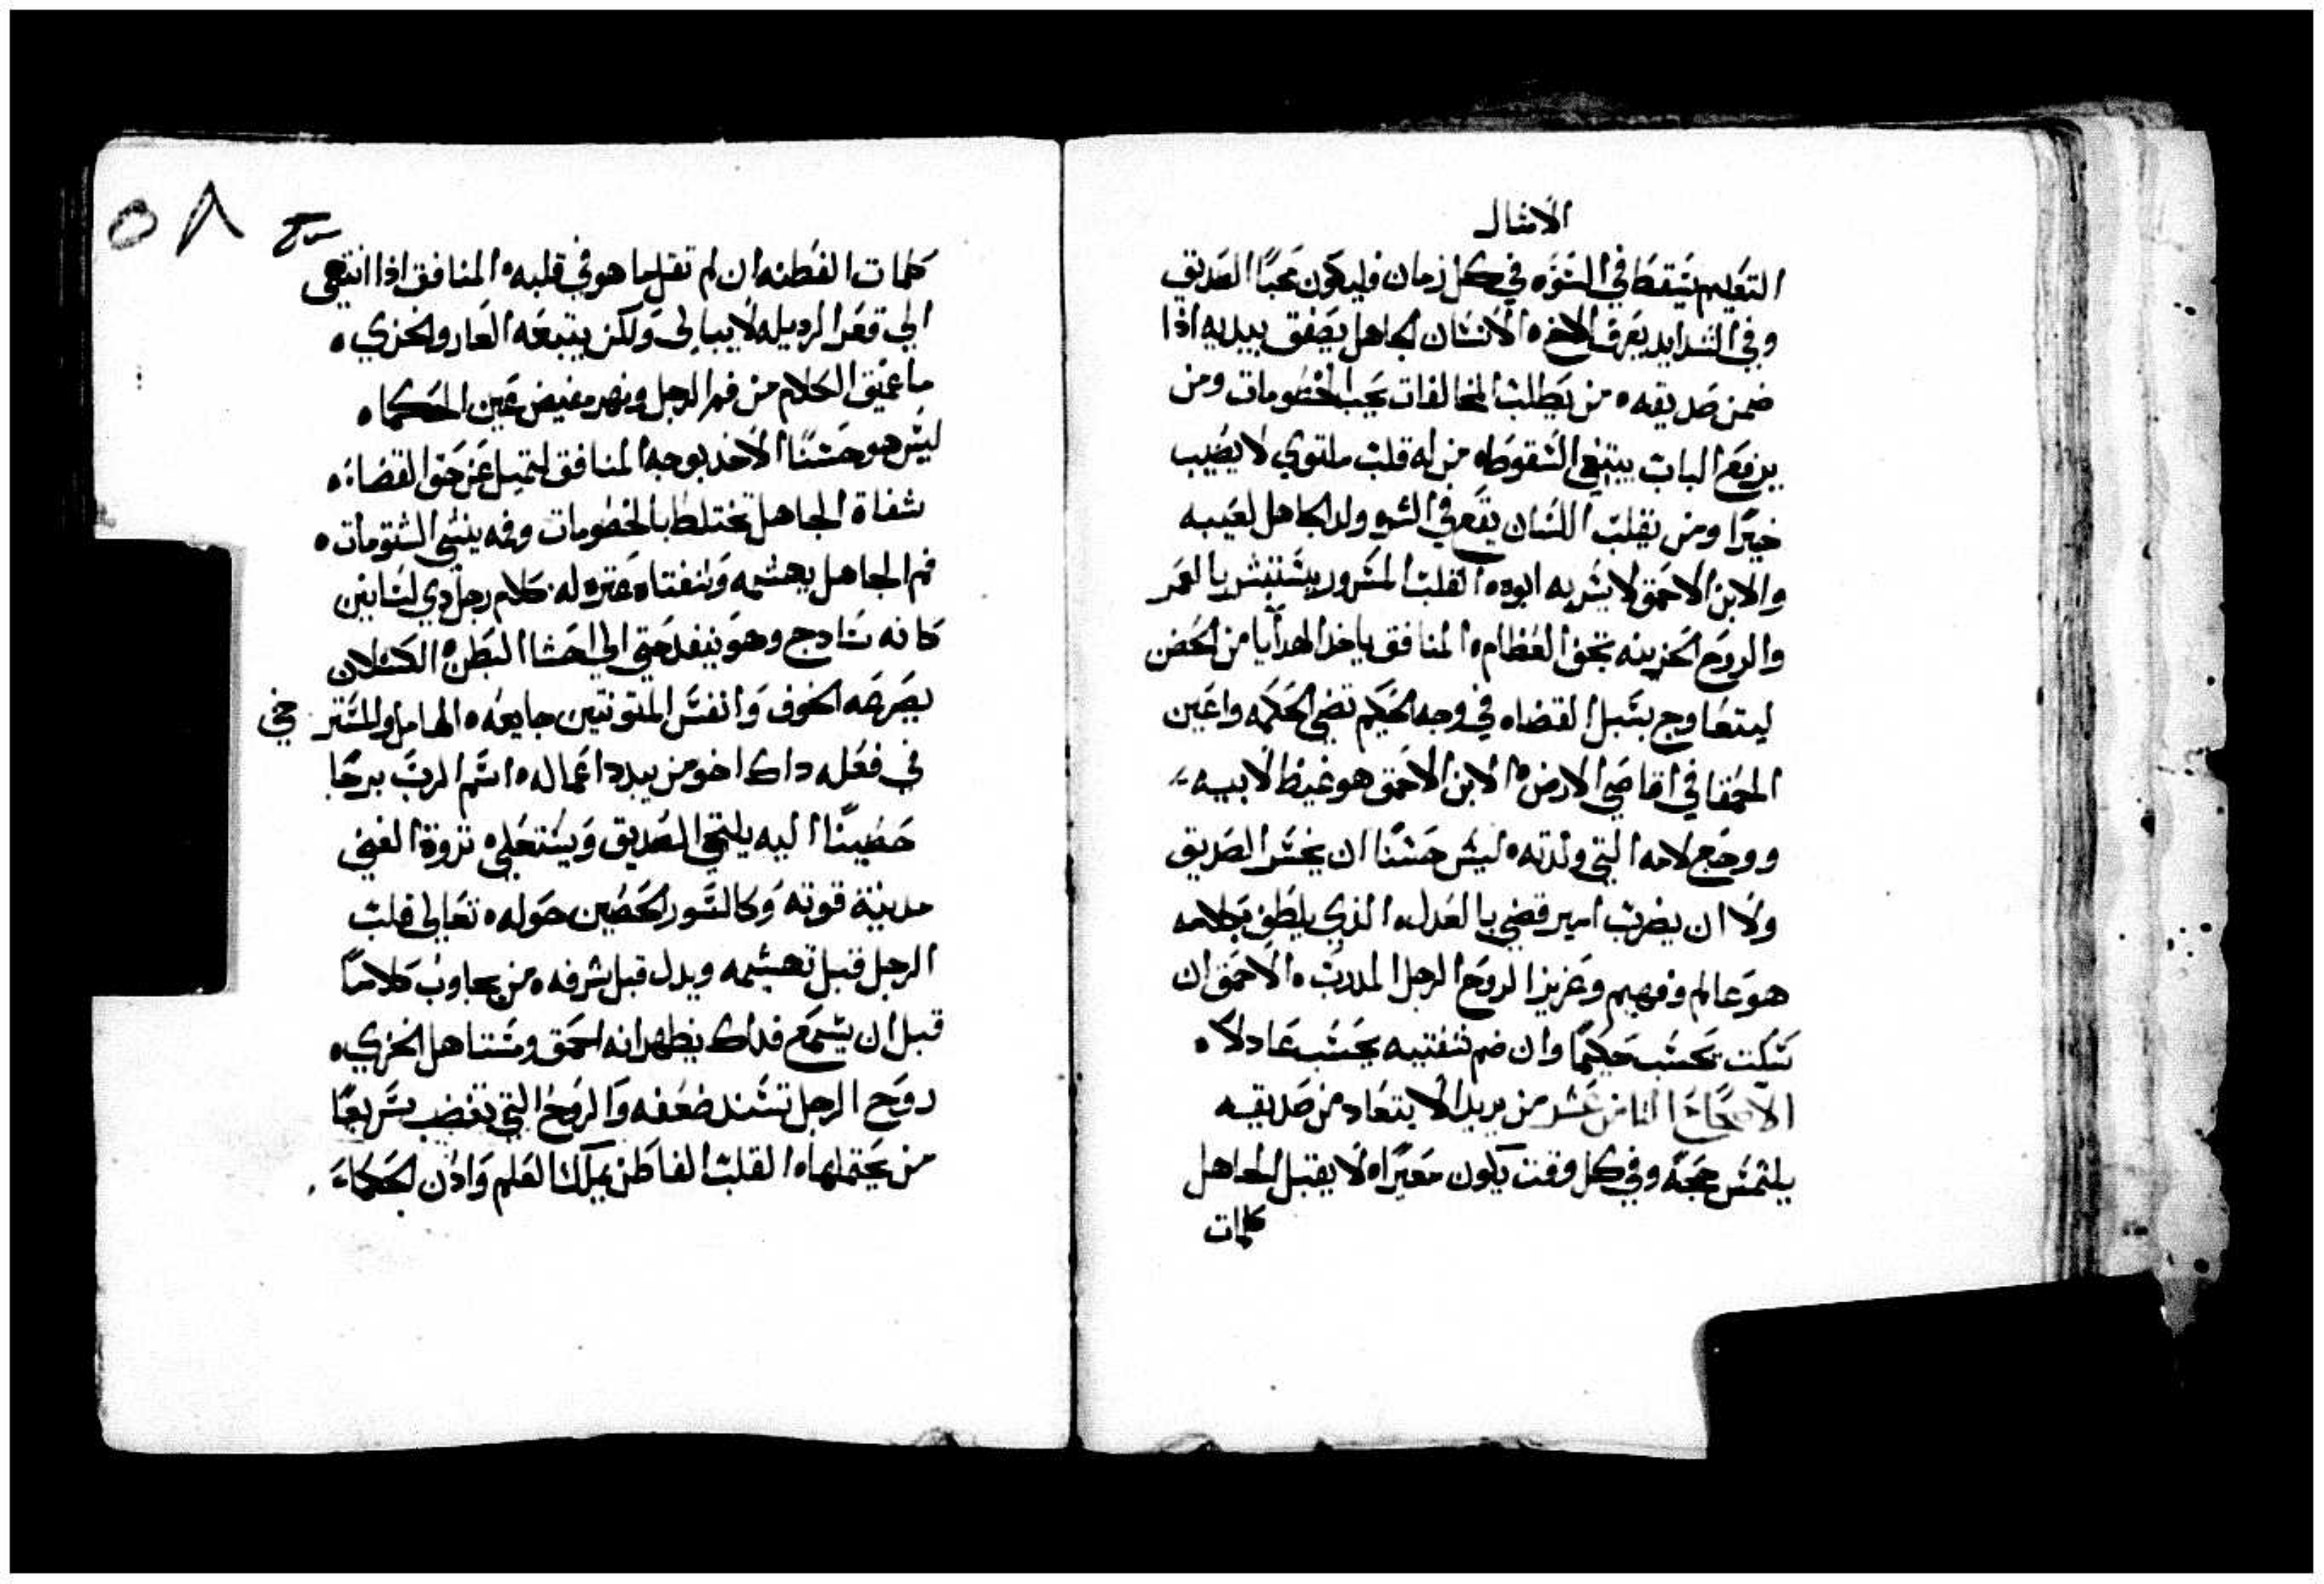 الامثال
التعليم يسقط في السوء في كل زمان فليكون محبا الصديق
وفي الشدايد يعرف الاخ ه الانسان الجاهل يصفق بيديه اذا
ضمن صديقه ه من يطلب المخالفات يحب الخصومات ومن
يرفع الباب يبتغي السقوط ه من له قلب ملتوي لا يصيب
خيرا ومن يقلب اللسان يقع في الشر ولد الجاهل لعيبه
والابن الاحمق لا يسر به ابوه ه القلب المسرور يستبشر بالعمر
والروح الحزينه تجفف العظام ه المنافق ياخذ الهدايا من الحضن
ليتعاوج بسبل القضاه في وجه الحكيم تضي الحكمه واعين
الحمقا في اقاصي الارض ه الابن الاحمق هو غيظ لابيه
ووجع لامه التي ولدته ه ليس حسنا ان يخسر الصديق
ولا ان يضرب امير قضي بالعدل ه الذي يلطف كلامه
هو عالم وفهيم وعزيز الروح الرجل المدرب ه الاحمق ان
سكت يحسب حكيما وان ضم شفتيه يحسب عادلا ه
الاصحاح الثامن عشر من يريد الابتعاد من صديقه
يلتمس حجة وفي كل وقت يكون معيرا ه لا يقبل الجاهل
كلمات
٥٨
كلمات الفطنه ان لم تقل ما هو في قلبه ه المنافق اذا انتهى
الي قعر الرديله لا يبالى ولكن يتبعه العار والخزي ه
ما عميق الكلام من فم الرجل ونهر مفيض عين الحكما ه
ليس هو حسنا الاخذ بوجه المنافق لتميل عن حق القضاء ه
شفاة الجاهل تختلط بالخصومات وفمه ينشي الشتومات ه
فم الجاهل يهشمه وشفتاه عثره له كلام رجل ذي لسانين
كانه سادج وهو ينفد حتي الي احشا البطن ه الكسلان
يصرعه الخوف وانفس المتونتين جايعه ه الهامل والمستر خي
في فعله داك اخو من يبدد اعماله ه اسم الرب برجا
حصينا اليه يلتجي الصديق ويستعلي ه تروة الغني
مدينة قوته وكالسور الحصين حوله ه تعالي قلب
الرجل قبل تهشمه ويدل قبل شرفه ه من يجاوب كلاما
قبل ان يسمع فداك يظهر انه احمق ومستاهل الخزي ه
روح الرجل تسند ضعفه والروح التي تغضب سريعا
من يحتملها ه القلب الفاطن يملك العلم واذن الحكماء